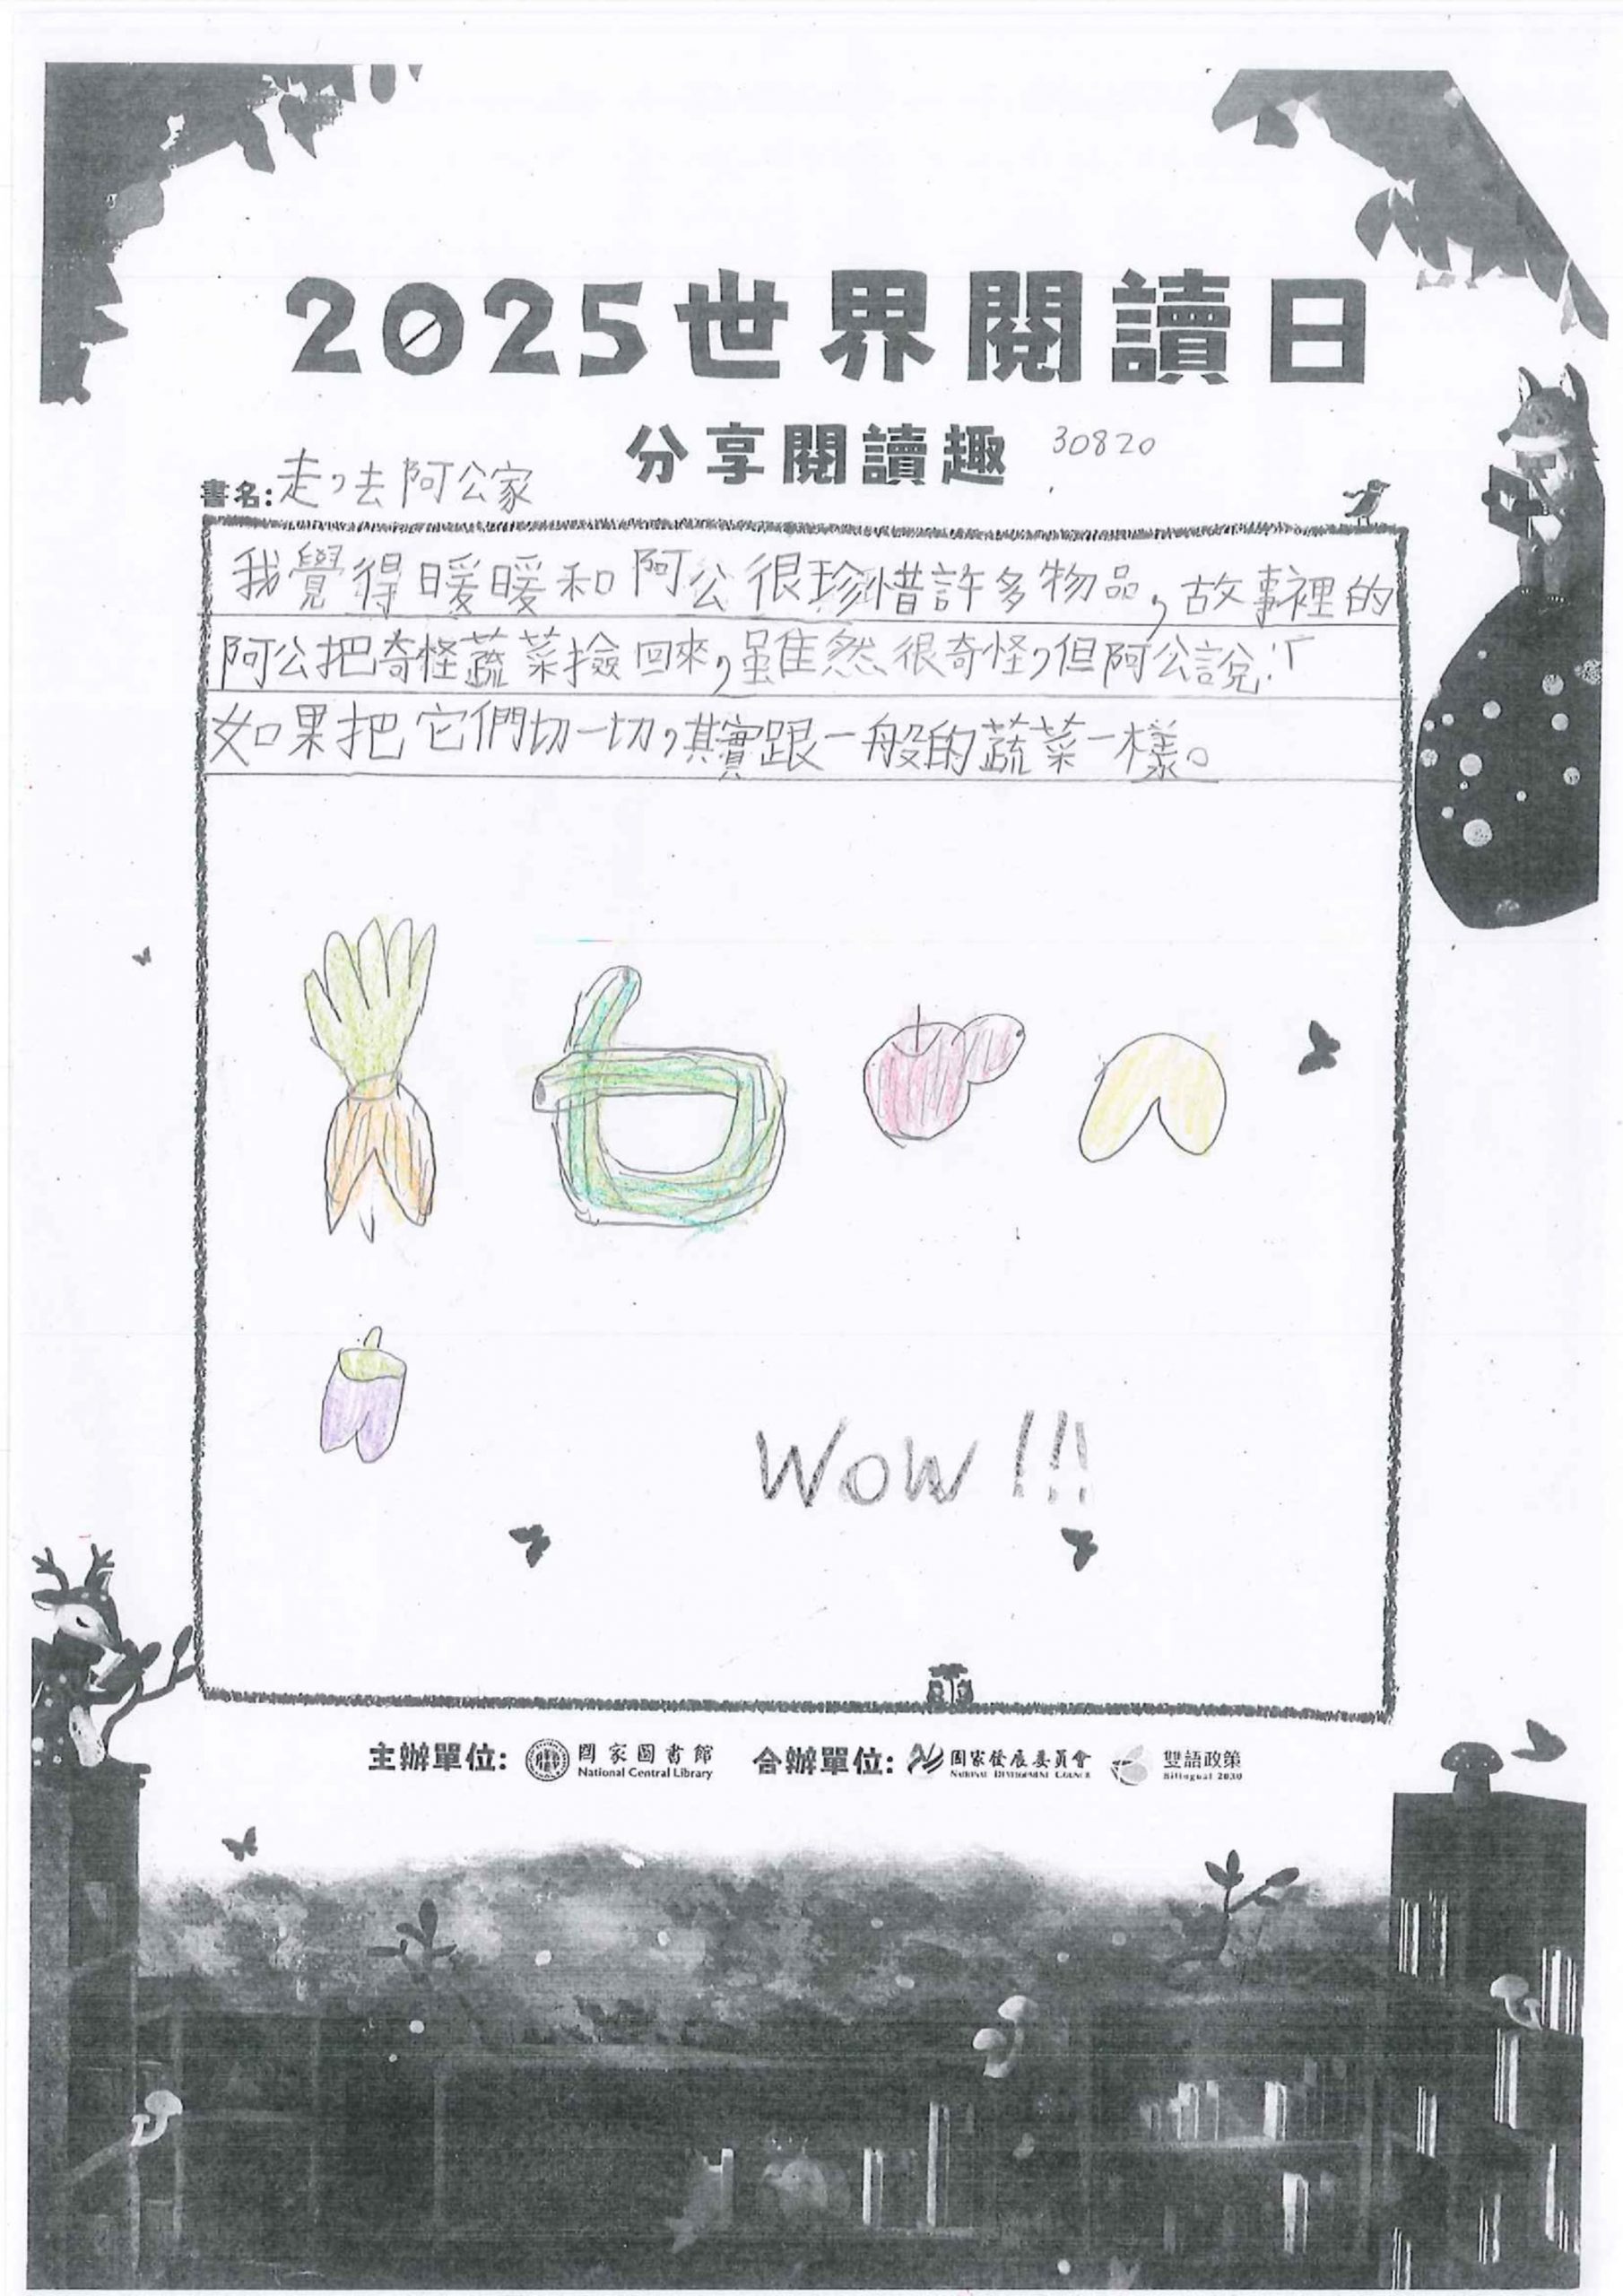 2025世界閱讀日
分享閱讀趣 30820
書名:走,去阿公家
我覺得暖暖和阿公很珍惜許多物品,故事裡的
阿公把奇怪蔬菜撿回來,雖然很奇怪,但阿公說:「
如果把它們切一切,其實跟一般的蔬菜一樣。
Wow!!!
主辦單位: 國家圖書館 National Central Library 合辦單位: 國家發展委員會 National Development Council 雙語政策 Bilingual 2030